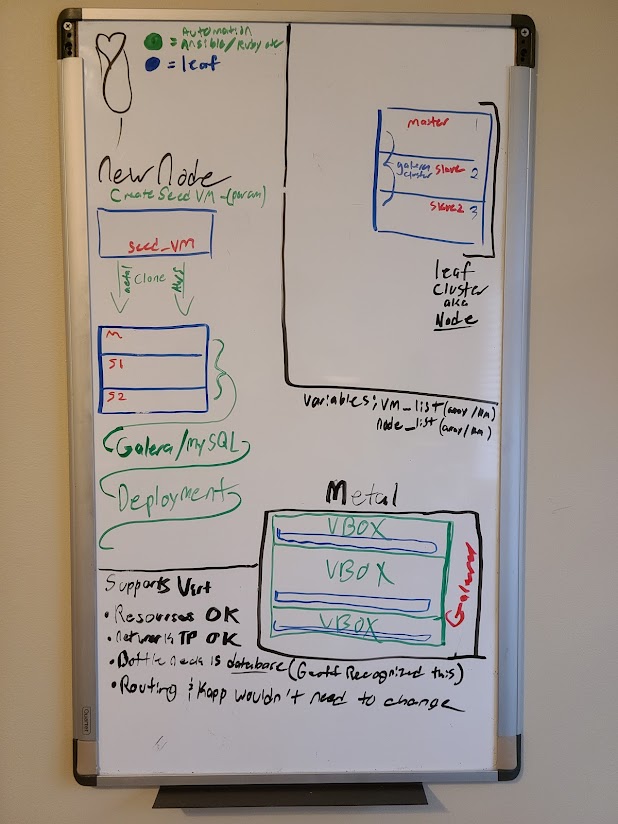 = Automation
Ansible/Ruby etc
= leaf
New Node
Create Seed VM - (param)
Seed_VM
metal
Clone
M
S1
S2
Galera/MySQL
Deployment
master 1
galera
cluster
Slave 2
Slave2 3
leaf
Cluster
aka
Node
Variables; VM_list (array/
node_list (array/
Metal
VBOX
VBOX
VBOX
Galera
Supports Virt
• Resourses OK
• Network TP OK
• Bottle neck is database (Geoff Recognized this)
• Routing & Kapp wouldn't need to change
Quartet